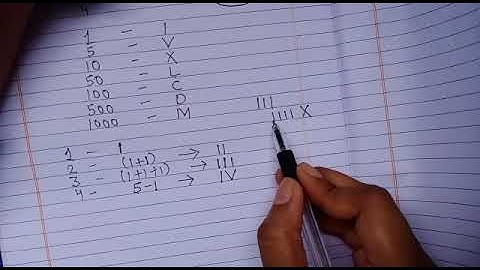 1 - I
5 - V
10 - X
50 - L
100 - C
500 - D
1000 - M
III
IIII X
1 - 1
2 - (1+1) → II
3 - (1+1+1) → III
4 - 5-1 → IV